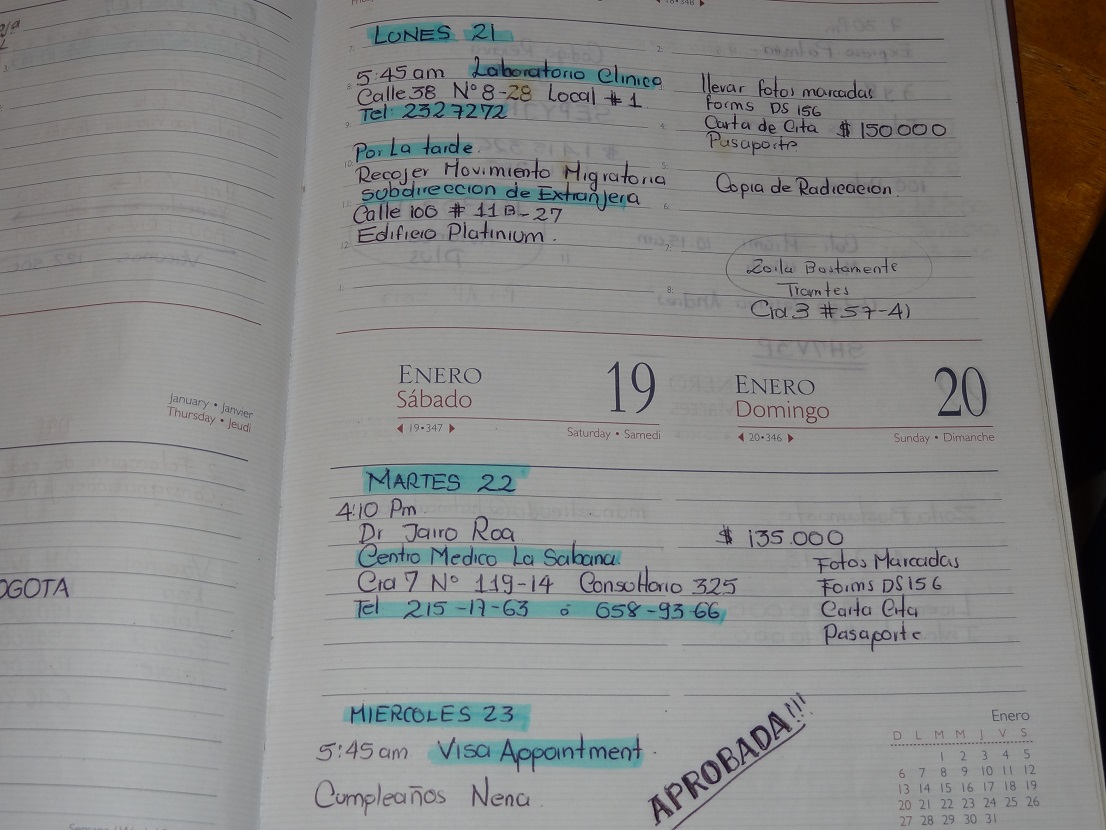 LUNES 21
5:45am Laboratorio Clinico
Calle 38 N° 8-28 Local # 1
Tel: 232 7272
llevar fotos marcadas
Forms DS 156
Carta de Cita $ 150000
Pasaporte
Por La tarde.
Recojer Movimiento Migratorio
subdireccion de Extranjera
Calle 100 # 11B-27
Edificio Platinium.
Copia de Radicacion
Zoila Bastamente
Tramtes
Cra 3 # 57-41
ENERO
Sábado
19
19•347
Saturday • Samedi
ENERO
Domingo
20
20•346
Sunday • Dimanche
January • Janvier
Thursday • Jeudi
MARTES 22
4:10 Pm
Dr Jairo Roa
Centro Medico La Sabana
Cra 7 N° 119-14 Consoltorio 325
Tel 215-17-63 ó 658-93-66
$ 135.000
Fotos Marcadas
Forms DS156
Carta Cita
Pasaporte
OGOTA
MIERCOLES 23
5:45am Visa Appointment.
Cumpleaños Nena.
APROBADA!!!
Enero
D L M M J V S
1 2 3 4 5
6 7 8 9 10 11 12
13 14 15 16 17 18 19
20 21 22 23 24 25 26
27 28 29 30 31